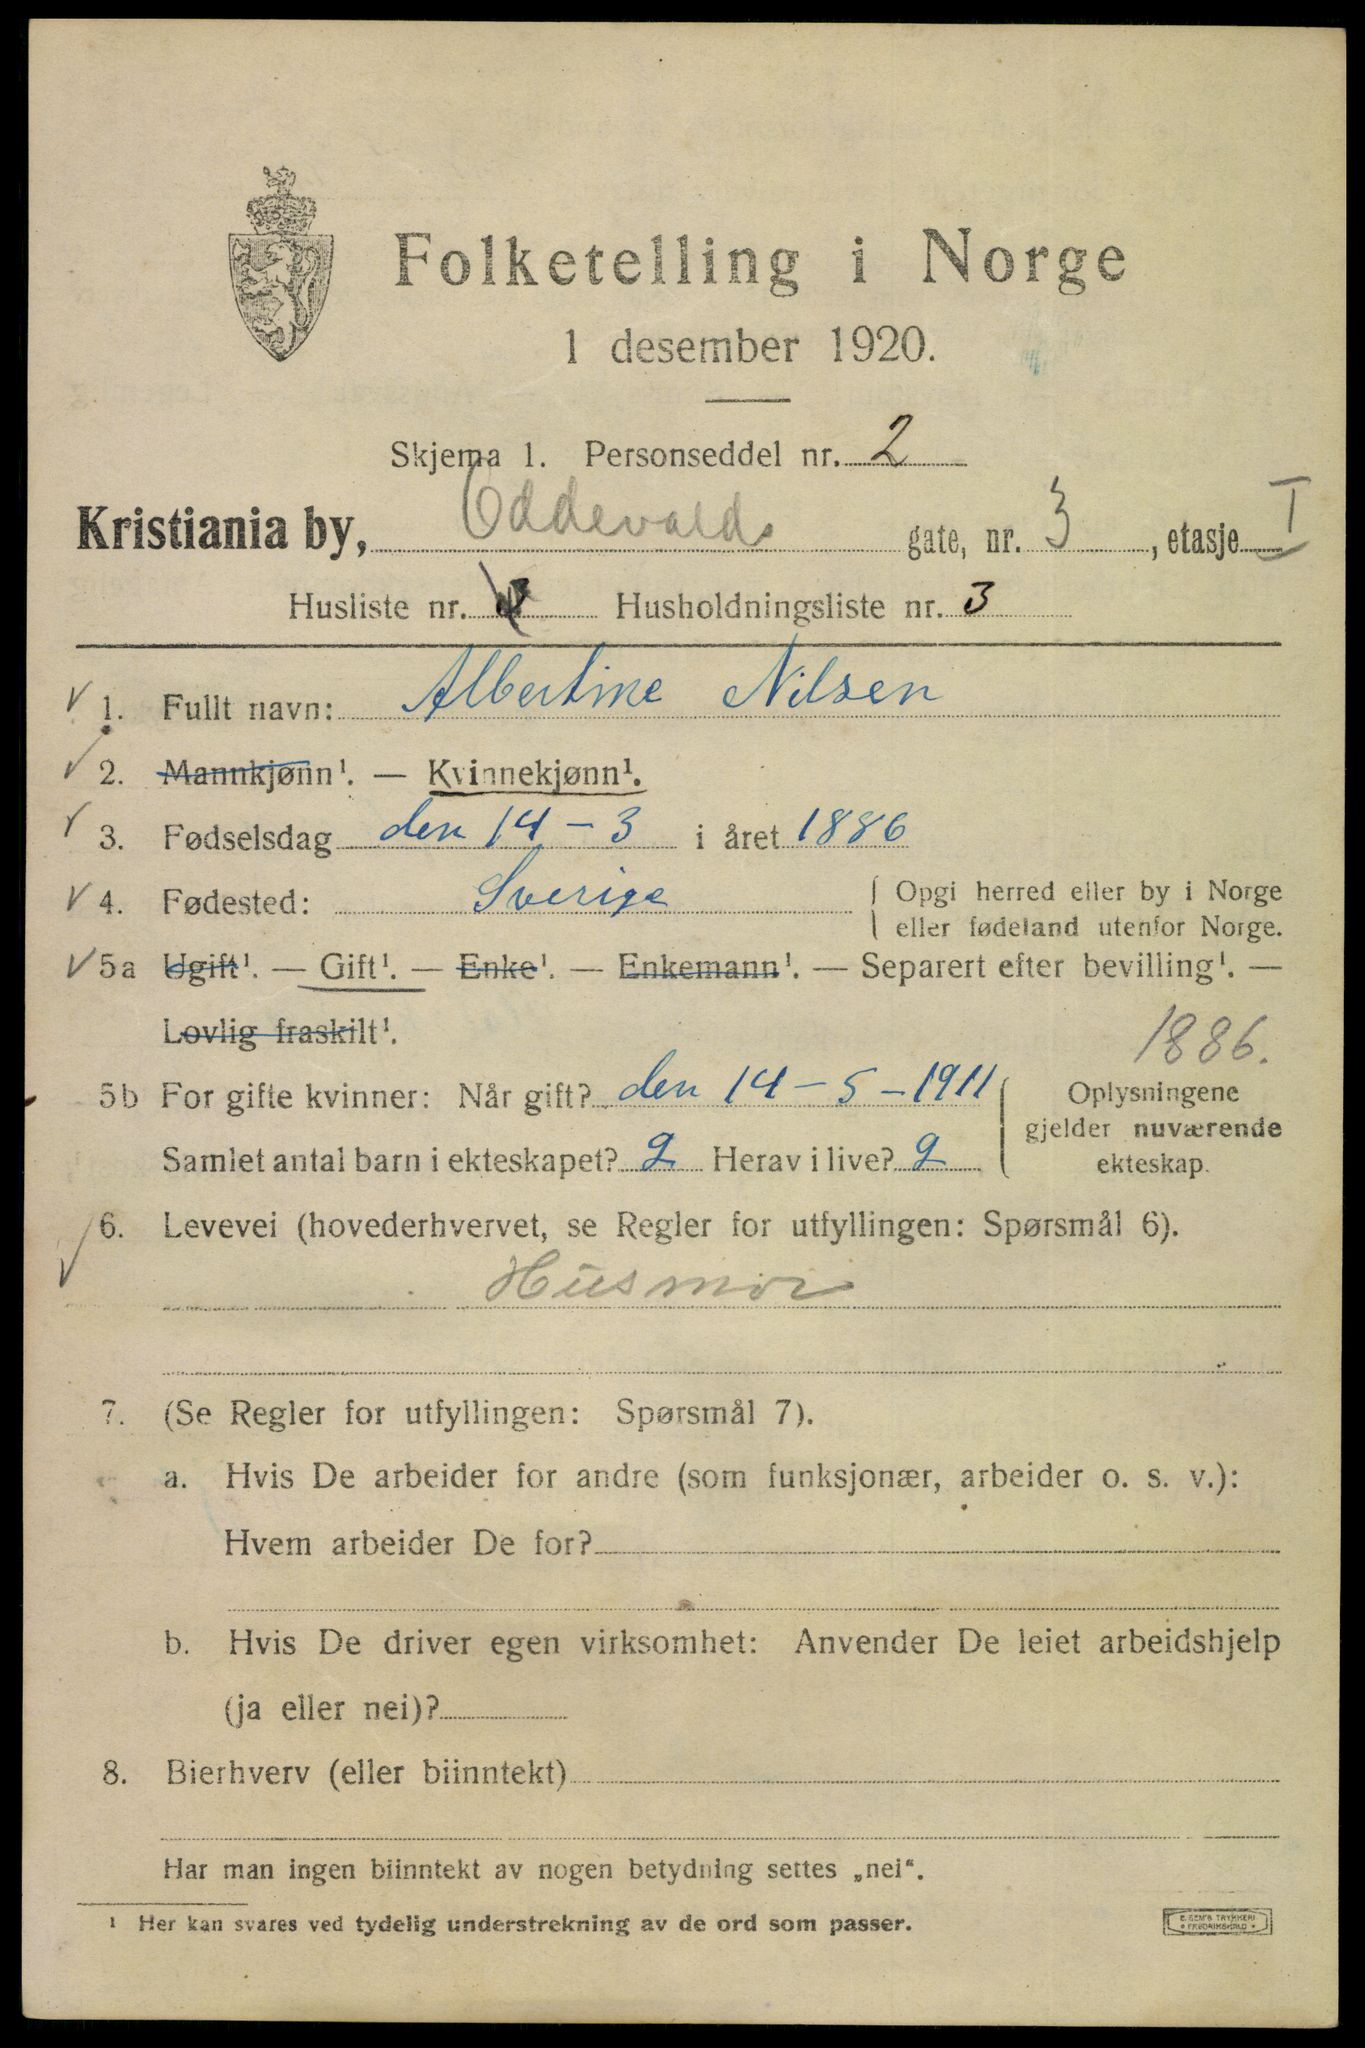 Folketelling i Norge
1 desember 1920.
Skjema 1. Personseddel nr. 2
Kristiania by, Uddevalds gate, nr. 3, etasje I
Husliste nr. Husholdningsliste nr. 3
1. Fullt navn: Albertine Nilsen
2. Mannkjønn¹. — Kvinnekjønn¹.
3. Fødselsdag den 14 - 3 i året 1886
4. Fødested: Sverige { Opgi herred eller by i Norge
eller fødeland utenfor Norge.
5a Ugift¹. — Gift¹. — Enke¹. — Enkemann¹. — Separert efter bevilling¹. —
Lovlig fraskilt¹.
1886.
5b For gifte kvinner: Når gift? den 14 - 5 - 1911
Samlet antal barn i ekteskapet? 2 Herav i live? 2
Oplysningene
gjelder nuværende
ekteskap.
6. Levevei (hovederhvervet, se Regler for utfyllingen: Spørsmål 6).
Husmor
7. (Se Regler for utfyllingen: Spørsmål 7).
a. Hvis De arbeider for andre (som funksjonær, arbeider o. s. v.):
Hvem arbeider De for?
b. Hvis De driver egen virksomhet: Anvender De leiet arbeidshjelp
(ja eller nei)?
8. Bierhverv (eller biinntekt)
Har man ingen biinntekt av nogen betydning settes „nei“.
¹ Her kan svares ved tydelig understrekning av de ord som passer.
E. SEM'S TRYKKERI
FREDRIKSHALD